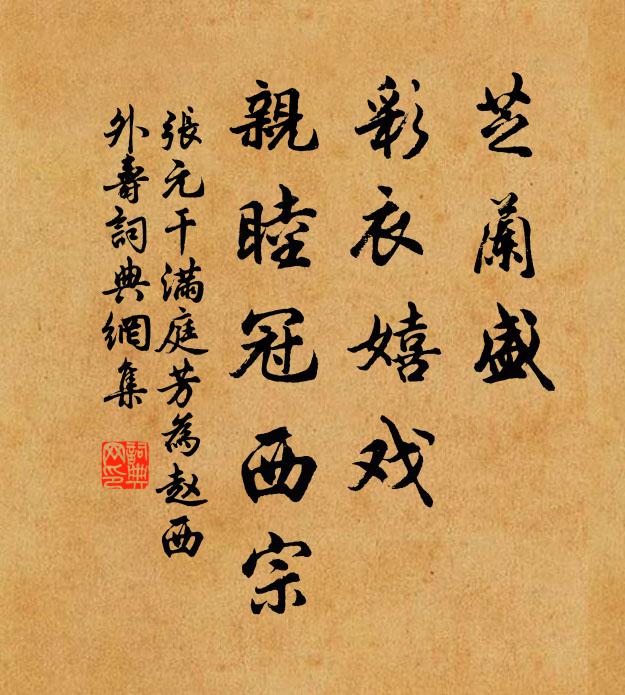 芝蘭盛
彩衣嬉戏
親睦冠西宗
張元干满庭芳為赵西
外壽詞典網集
詞典網印